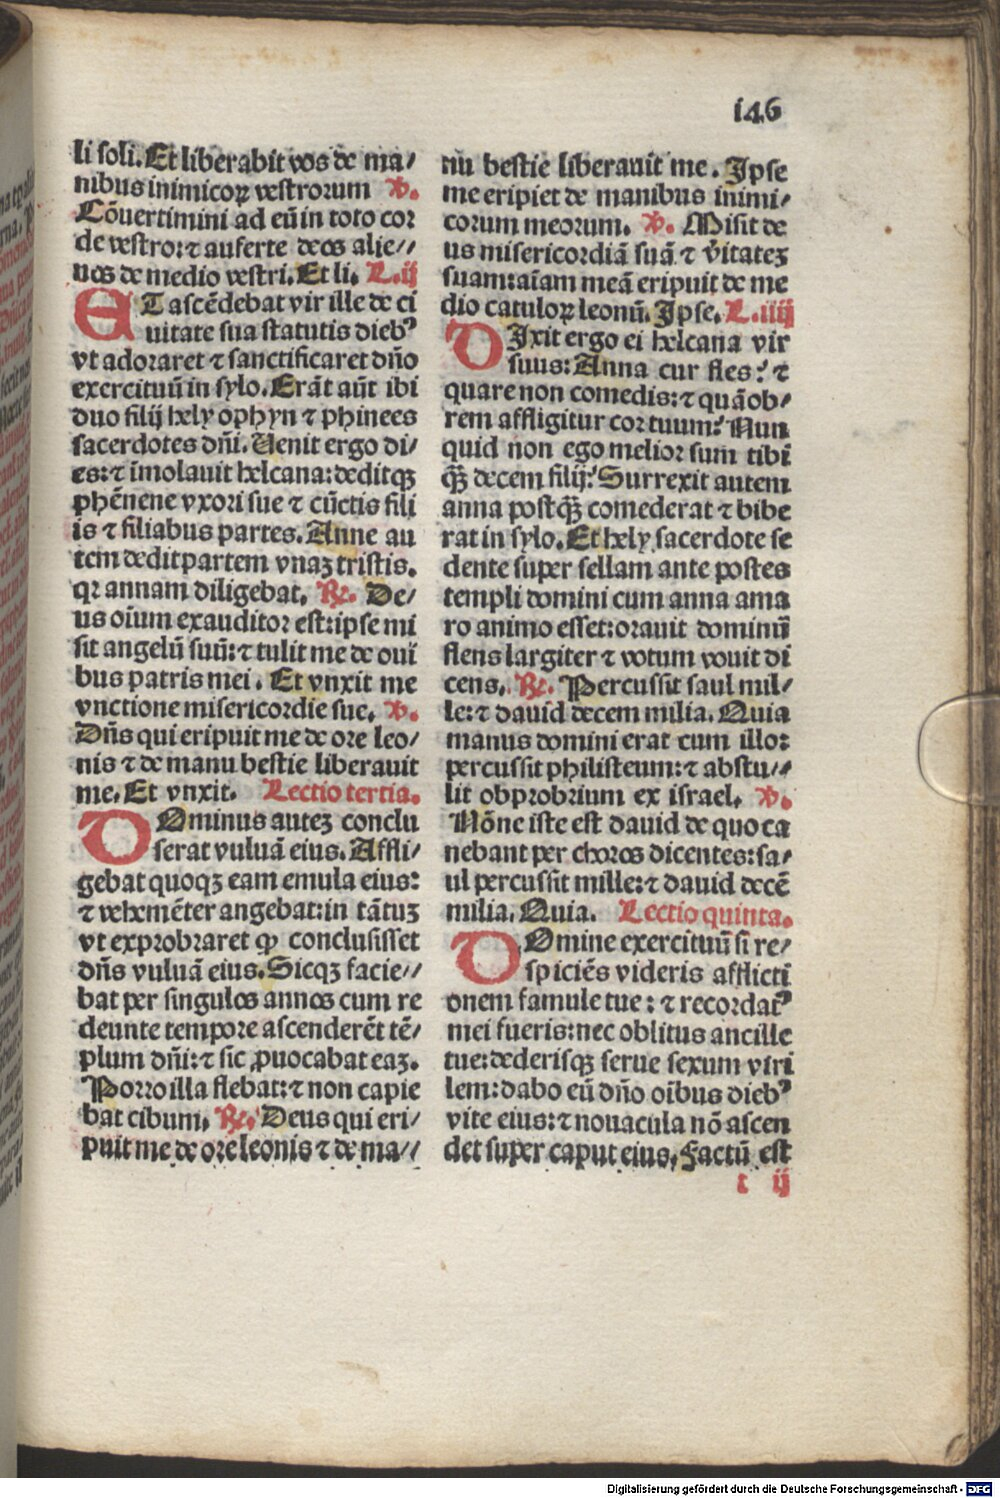 146
li soli. Et liberabit vos de ma/
nibus inimicoꝝ vestrorum ℣.
Cōvertimini ad eū in toto cor
de vestro: ⁊ auferte deos alie//
nos de medio vestri. Et li. L. ij
ET ascēdebat vir ille de ci
uitate sua statutis dieb⁹
vt adoraret ⁊ sanctificaret dño
exercituū in sylo. Erāt aūt ibi
duo filij hely ophyn ⁊ phinees
sacerdotes dñi. Uenit ergo di/
es: ⁊ īmolauit helcana: deditqꝫ
phēnene vxori sue ⁊ cūctis fili
is ⁊ filiabus partes. Anne au
tem dedit partem vnaꝫ tristis.
qꝛ annam diligebat. ℟. De/
us oīum exauditor est: ipse mi
sit angelū suū: ⁊ tulit me de oui
bus patris mei. Et vnxit me
vnctione misericordie sue. ℣.
Dñs qui eripuit me de ore leo/
nis ⁊ de manu bestie liberauit
me. Et vnxit. Lectio tertia.
DOminus auteꝫ conclu
serat vuluā eius. Affli/
gebat quoqꝫ eam emula eius:
⁊ vehemēter angebat: in tātuꝫ
vt exprobraret ꝙ conclusisset
dñs vuluā eius. Sicqꝫ facie//
bat per singulos annos cum re
deunte tempore ascenderēt tē/
plum dñi: ⁊ sic ꝓuocabat eaꝫ.
Porro illa flebat: ⁊ non capie
bat cibum. ℟. Deus qui eri/
puit me de ore leonis ⁊ de ma//
nu bestie liberauit me. Ipse
me eripiet de manibus inimi/
corum meorum. ℣. Misit de
us misericordiā suā ⁊ v̄itateꝫ
suam: aīam meā eripuit de me
dio catuloꝝ leonū. Ipse. L. iiij
DIxit ergo ei helcana vir
suus: Anna cur fles? ⁊
quare non comedis: ⁊ quāob/
rem affligitur cor tuum? Nun
quid non ego melior sum tibi
qꝫ̄ decem filij? Surrexit autem
anna postqꝫ̄ comederat ⁊ bibe
rat in sylo. Et hely sacerdote se
dente super sellam ante postes
templi domini cum anna ama
ro animo esset: orauit dominū
flens largiter ⁊ votum vouit di
cens. ℟. Percussit saul mil/
le: ⁊ dauid decem milia. Quia
manus domini erat cum illo:
percussit philisteum: ⁊ abstu//
lit obprobrium ex israel. ℣.
Nōne iste est dauid de quo ca
nebant per choros dicentes: sa/
ul percussit mille: ⁊ dauid decē
milia. Quia. Lectio quinta.
DOmine exercituū si re/
spiciēs videris afflicti
onem famule tue: ⁊ recordat⁹
mei fueris: nec oblitus ancille
tue: dederisqꝫ serue sexum viri
lem: dabo eū dño oībus dieb⁹
vite eius: ⁊ nouacula nō ascen
det super caput eius. Factū est
t ij
Digitalisierung gefördert durch die Deutsche Forschungsgemeinschaft - DFG